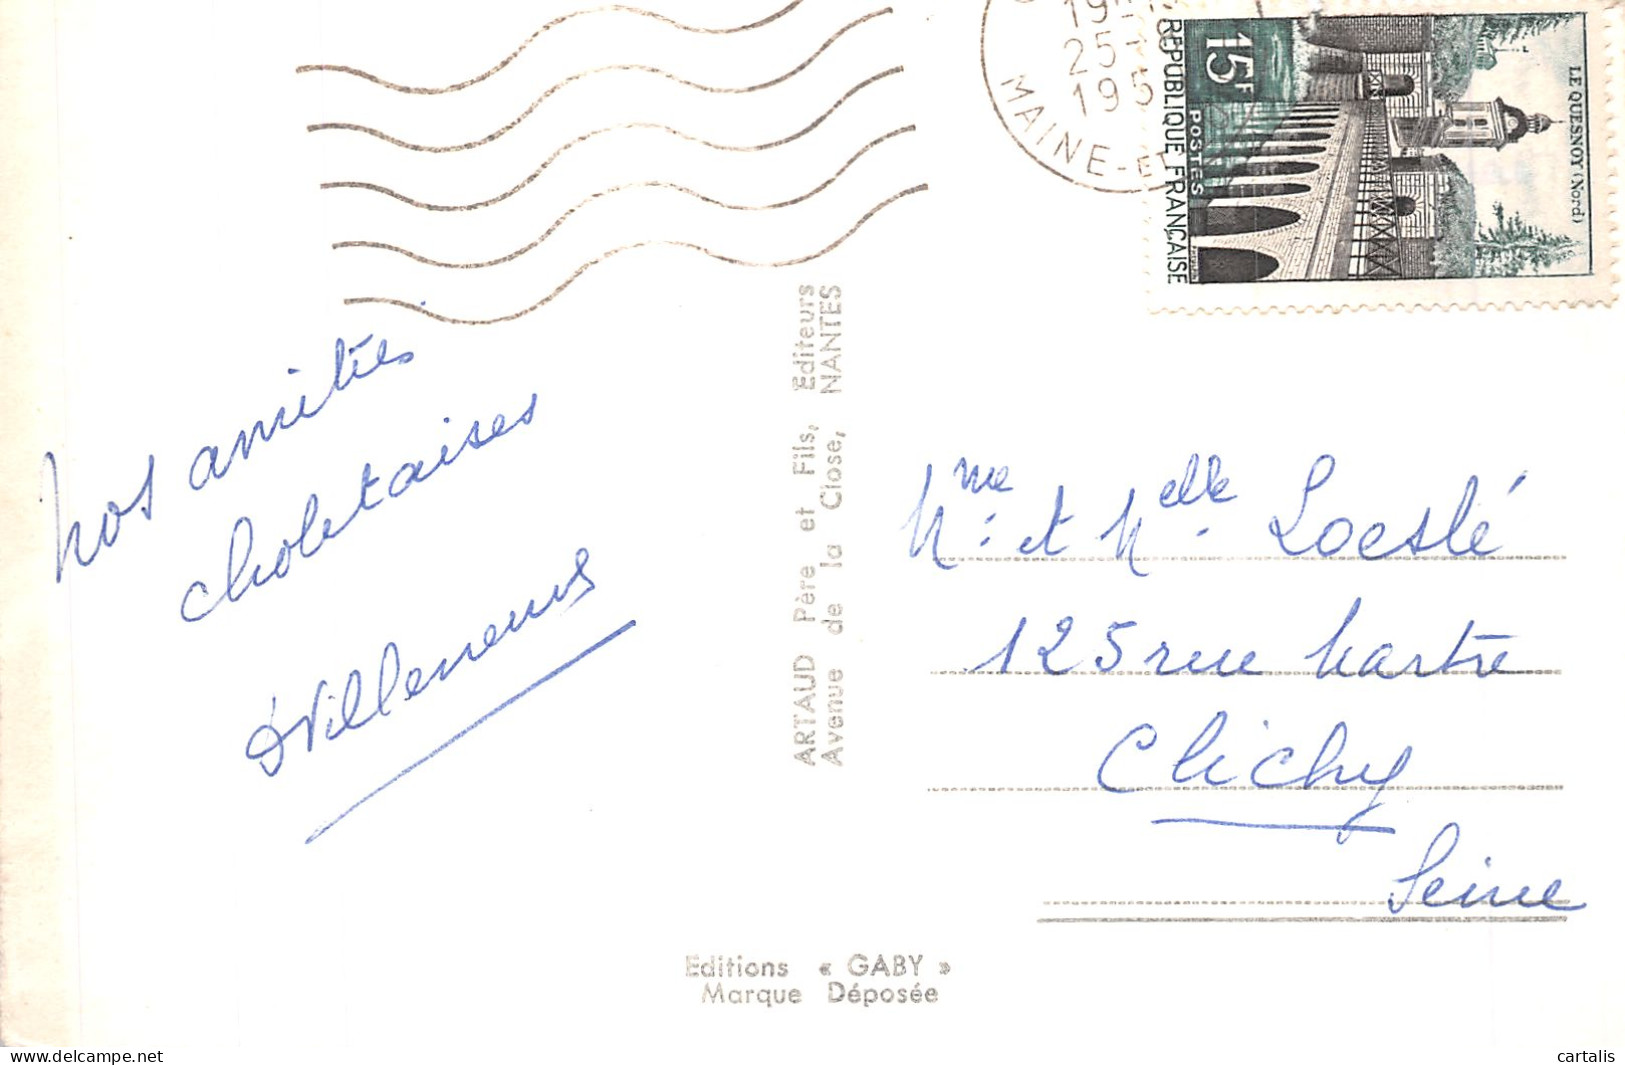 nos amitiés
choletaises
ARTAUD Père et Fils, Editeurs
Avenue de la Close, NANTES
Editions « GABY »
Marque Déposée
19
25
195
MAINE-ET
15F
POSTES
REPUBLIQUE FRANÇAISE
LE QUESNOY (Nord)
Mme et Melle Loeslé
125 rue Martre
Clichy
Seine
delcampe.net
cartalis